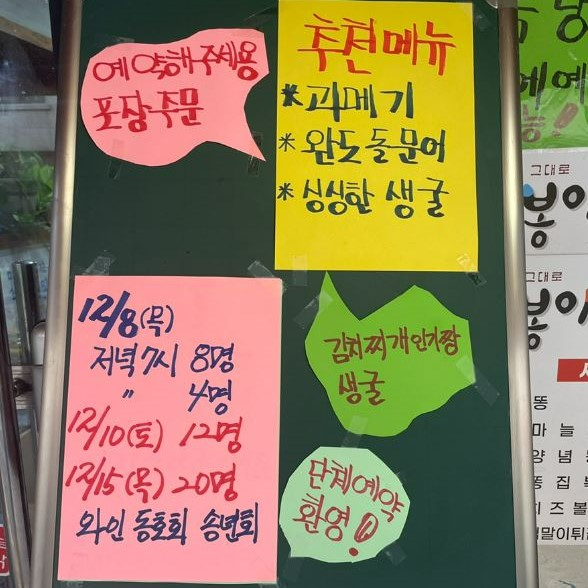 예약해주세용
포장주문
추천메뉴
*과메기
*완도돌문어
*싱싱한 생굴
12/8(목)
저녁7시 8명
〃 4명
12/10(토) 12명
12/15(목) 20명
와인 동호회 송년회
김치찌개인기짱
생굴
단체예약
환영!
그대로
봉이
그대로
봉이
똥
마 늘
양 념
똥 집
치 즈 볼